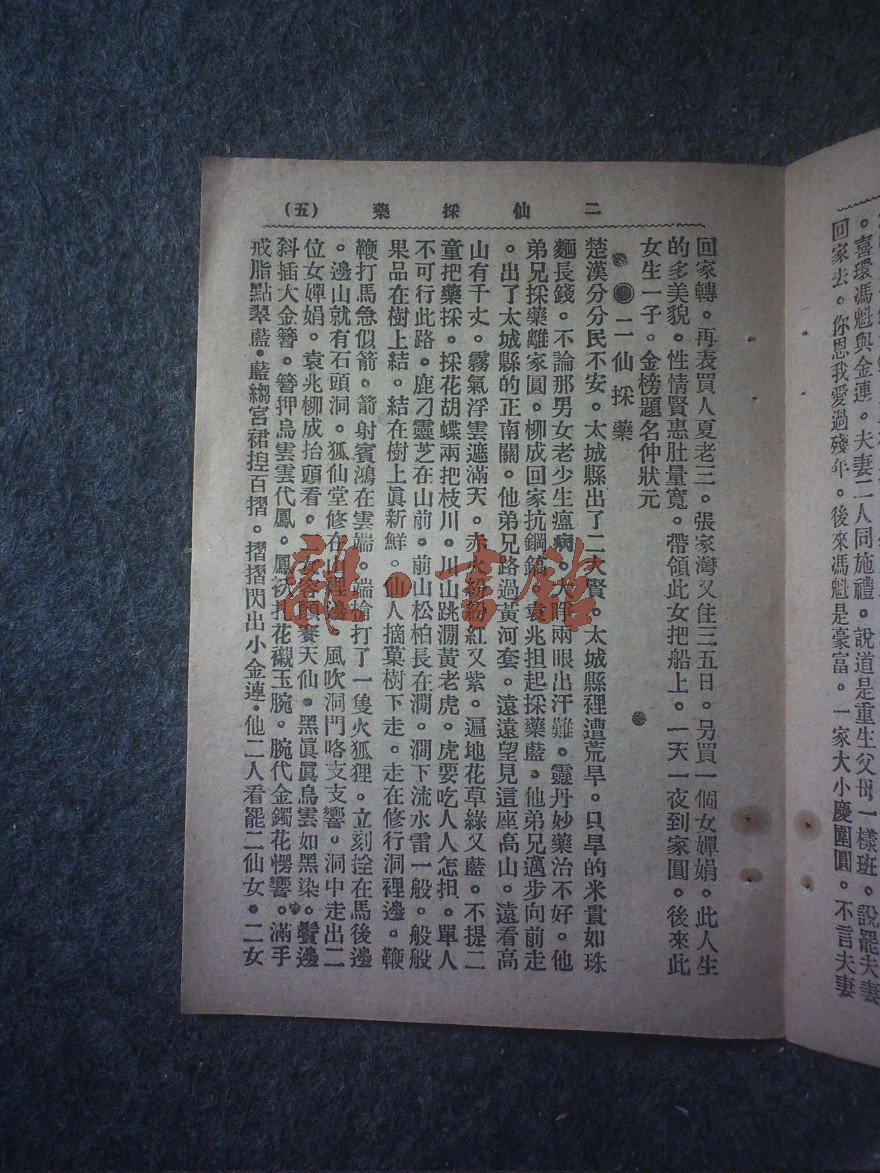 二仙採藥 (五)
回家轉。再表買人夏老三。張家灣又住三五日。另買一個女嬋娟。此人生
的多美貌。性情賢惠肚量寬。帶領此女把船上。一天一夜到家圓。後來此
女生一子。金榜題名仲狀元
二仙採藥
楚漢分分民不安。太城縣出了二大賢。太城縣裡遭荒旱。只旱的米貴如珠
麵長錢。不論那男女老少生瘟病。兩眼出汗難。靈丹妙藥治不好。他
弟兄採藥離家圓。柳成回家抗鋼鎬。袁兆担起採藥藍。他弟兄邁步向前走
。出了太城縣的正南關。他弟兄路過黃河套。遠遠望見這座高山。遠看高
山有千丈。霧氣浮雲遮滿天。赤火紛紛紅又紫。遍地花草綠又藍。不提二
童把藥採。採花胡蝶兩把枝川。川山跳澗黃老虎。虎要吃人人怎担。單人
不可行此路。鹿刁靈芝在山前。前山松柏長在澗。澗下流水雷一般。般般
果品在樹上結。結在樹上眞新鮮。仙人摘菓樹下走。走在修行洞裡邊。鞭
鞭打馬急似箭。箭射賓鴻在雲端。端搶打了一隻火狐狸。立刻拴在馬後邊
。邊山就有石頭洞。狐仙堂修在山裡邊。風吹洞門咯支支響。洞中走出二
位女嬋娟。袁兆柳成抬頭看。女容顏賽天仙。黑眞眞烏雲如黑染。鬢邊
斜插大金簪。簪押烏雲雲代鳳。鳳扎花襯玉腕。腕代金鐲花愣響。滿手
戒脂點翠藍。藍縐宮裙捏百摺。摺摺閃出小金連。他二人看罷二仙女。二女
。喜環馮魁與金連。夫妻二人同施禮。說道是重生父母一樣班。說罷夫妻
回家去。你恩我愛過殘年。後來馮魁是豪富。一家大小慶團圓。不言夫妻
龍・書館